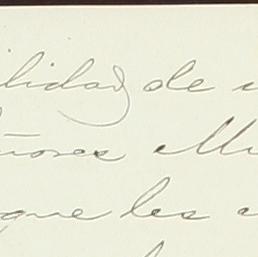 ilidad de
ñores Mu
que les